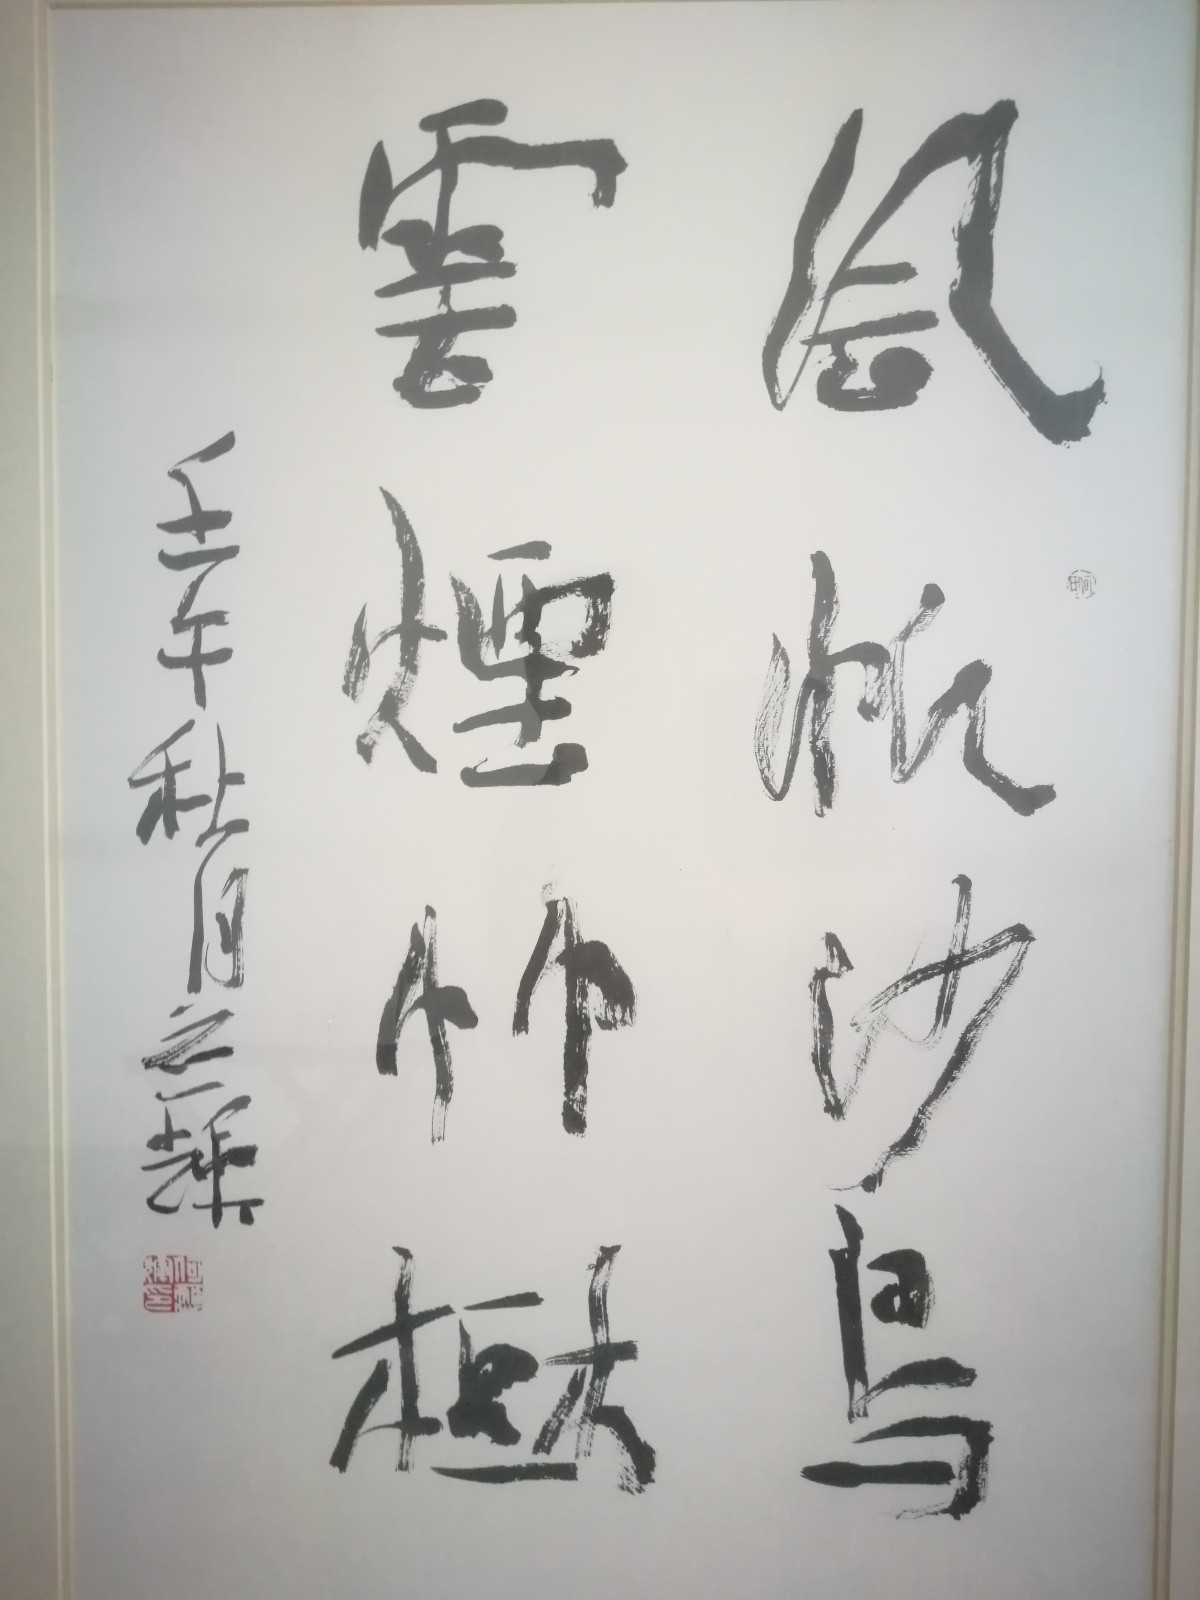 風帆沙鳥
雲煙竹樹
壬午秋月之輝